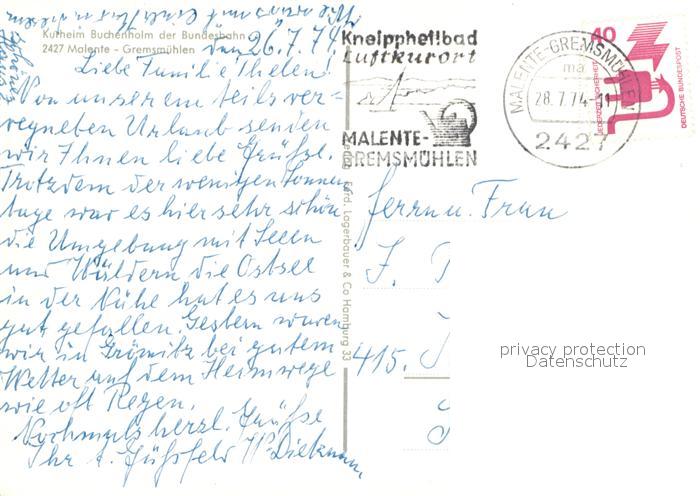 Kurheim Buchenholm der Bundesbahn
2427 Malente - Gremsmühlen
den 26.7.74.
Liebe Familie Thelen!
Von unserem teils ver-
regneben Urlaub senden
wir Ihnen liebe Grüße.
Trotzdem der wenigen Sonnen
tage war es hier sehr schön
die Umgebung mit Seen
und Wäldern die Ostsee
in der Nähe hat es uns
gut gefallen. Gestern waren
wir in Grömitz bei gutem
Wetter auf dem Heimwege
wie oft Regen.
Nochmals herzl. Grüße
Ihr
Kneippheilbad
Luftkurort
MALENTE-
GREMSMÜHLEN
MALENTE-GREMSMÜHLEN
ma
28.7.74
2427
40
JEDERZEIT SICHERHEIT
DEUTSCHE BUNDESPOST
Ferd. Lagerbauer & Co Hamburg 33
Herrn u. Frau
J. T
415.
privacy protection
Datenschutz